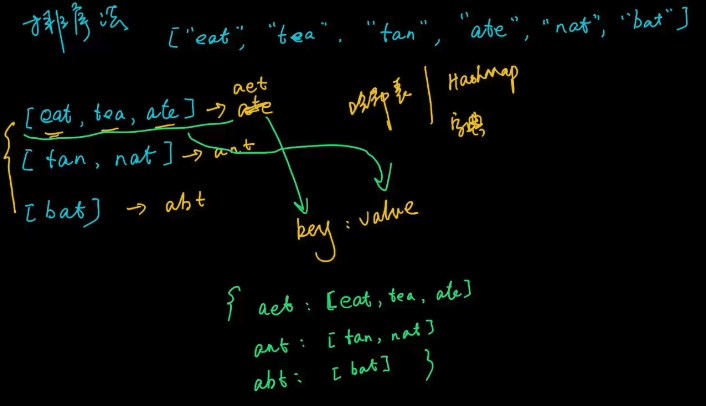 排序法
["eat", "tea", "tan", "ate", "nat", "bat"]
[eat, tea, ate] → aet
ate
[tan, nat] → ant
[bat] → abt
哈希表 | Hashmap
字典
key : value
{ aet : [eat, tea, ate]
ant : [tan, nat]
abt : [bat] }